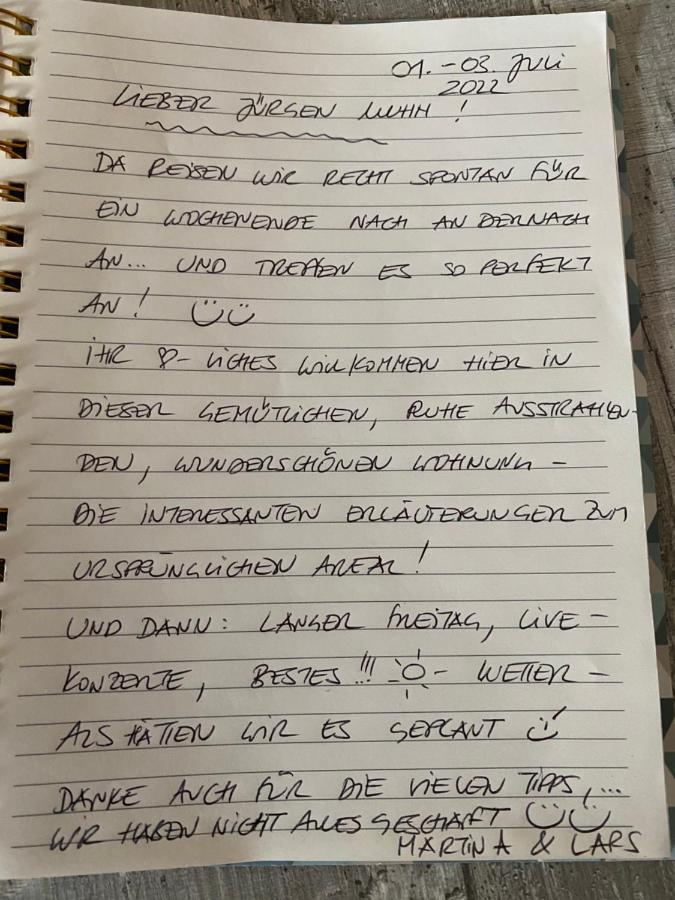 01.-03. Juli
2022
LIEBER JÜRGEN MUHM !
DA REISEN WIR RECHT SPONTAN FÜR
EIN WOCHENENDE NACH ANDERNACH
AN... UND TREFFEN ES SO PERFEKT
AN! ☺☺
IHR ♡-LICHES WILLKOMMEN HIER IN
DIESER GEMÜTLICHEN, RUHE AUSSTRAHLEN-
DEN, WUNDERSCHÖNEN WOHNUNG -
DIE INTERESSANTEN ERLÄUTERUNGEN ZUM
URSPRÜNGLICHEN AREAL!
UND DANN: LANGER FREITAG, LIVE-
KONZERTE, BESTES!!! ☼- WETTER -
ALS HÄTTEN WIR ES GEPLANT ☺
DANKE AUCH FÜR DIE VIELEN TIPPS,...
WIR HABEN NICHT ALLES GESCHAFFT ☺☺
MARTINA & LARS